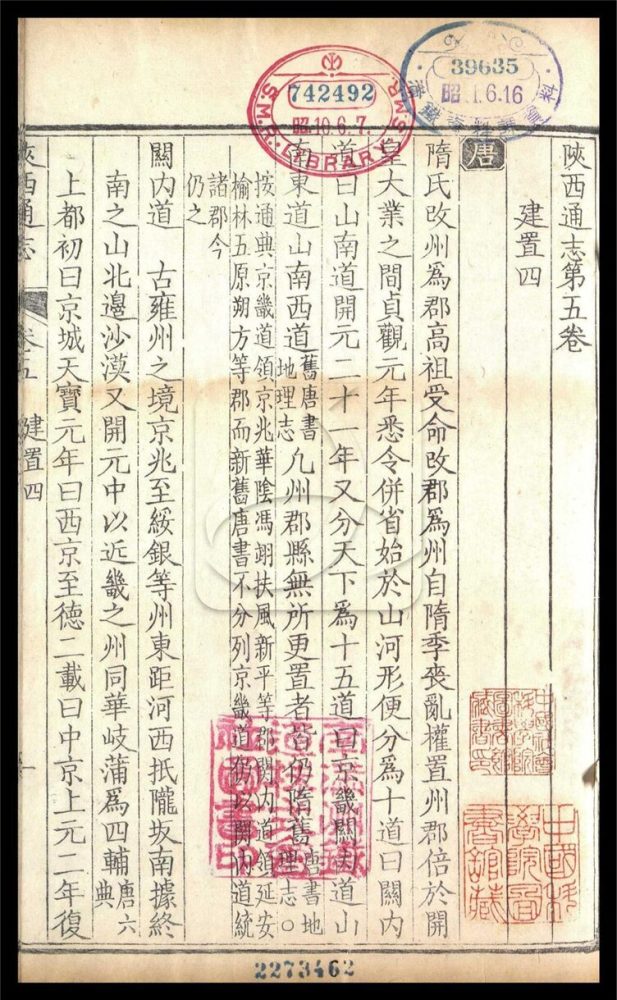 陝西通志第五卷
建置四
唐
隋氏改州爲郡高祖受命改郡爲州自隋季喪亂權置州郡倍於開
皇大業之間貞觀元年悉令併省始於山河形便分爲十道曰關內
道曰山南道開元二十一年又分天下爲十五道曰京畿關內道山
南東道山南西道舊唐書地理志凡州郡縣無所更置者皆仍隋舊唐書地理志〇
按通典京畿道領京兆華陰馮翊扶風新平等郡關內道領延安
榆林五原朔方等郡而新舊唐書不分列京畿道仍以關內道統
諸郡今
仍之
關內道 古雍州之境京兆至綏銀等州東距河西抵隴坂南據終
南之山北邊沙漠又開元中以近畿之州同華岐蒲爲四輔唐六典
上都初曰京城天寶元年曰西京至德二載曰中京上元二年復
陝西通志 卷五 建置四
S.M.R. LIBRARY S.M.R.
742492
昭10.6.7.
39635
昭11.6.16
中國科學院圖書館藏
2273462